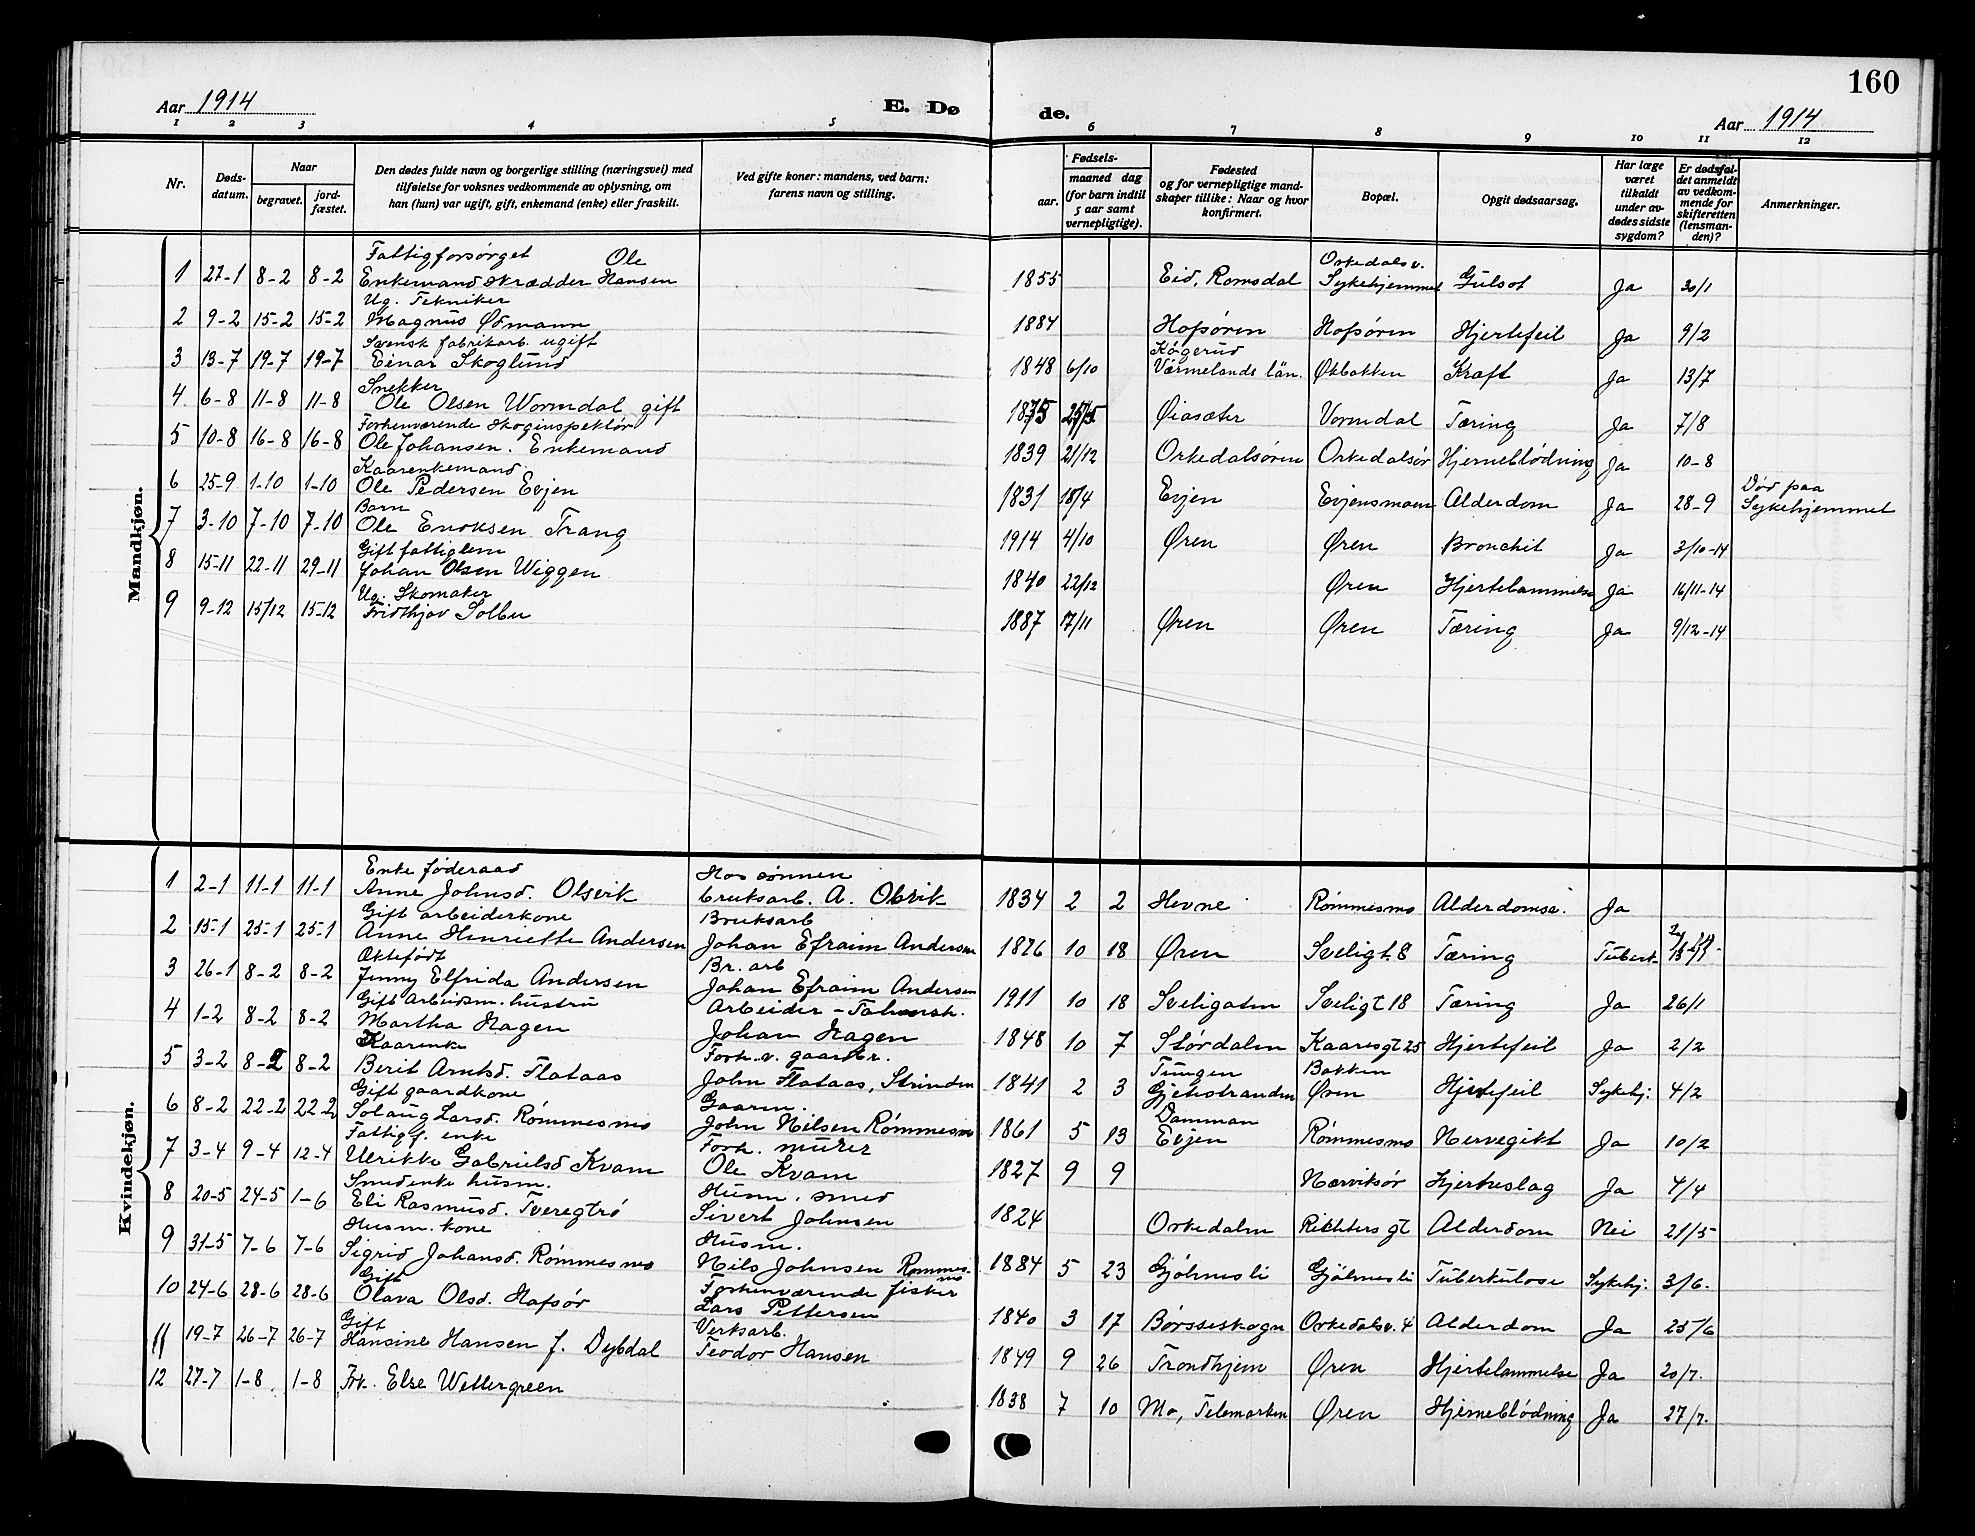 160
Aar 1914 E. Dø de. Aar 1914
1 2 3 4 5 6 7 8 9 10 11 12
Nr. Døds-datum. Naar begravet. jord-fæstet. Den dødes fulde navn og borgerlige stilling (næringsvei) med tilføielse for voksnes vedkommende av oplysning, om han (hun) var ugift, gift, enkemand (enke) eller fraskilt. Ved gifte koner: mandens, ved barn: farens navn og stilling. Fødsels- aar. maaned dag (for barn indtil 5 aar samt vernepligtige). Fødested og for vernepligtige mandskaper tillike: Naar og hvor konfirmert. Bopæl. Opgit dødsaarsag. Har læge været tilkaldt under avdødes sidste sygdom? Er dødsfaldet anmeldt av vedkommende for skifteretten (lensmanden)? Anmerkninger.
Mandkjøn.
Fattigforsørget Ole Orkedalsv.
1 27-1 8-2 8-2 Enkemand skrædder Hansen 1855 Eid, Romsdal Sykehjemmet Gulsot Ja 30/1
Ug. Tekniker
2 9-2 15-2 15-2 Magnus Ødmann 1884 Hofsøren Hofsøren Hjertefeil Ja 9/2
Svensk fabrikarb. ugift Køgerud
3 13-7 19-7 19-7 Einar Skoglund 1848 6/10 Värmelands län. Økbakken Kraft Ja 13/7
Snekker
4. 6-8 11-8 11-8 Ole Olsen Wormdal gift 1875 25/5 Øiasæter Vormdal Tæring Ja 7/8
Forhenværende skoginspektør
5 10-8 16-8 16-8 Ole Johansen. Enkemand 1839 21/12 Orkedalsøren Orkedalsør Hjerneblødning Ja 10-8
Kaarenkemand
6 25-9 1-10 1-10 Ole Pedersen Evjen 1831 18/4 Evjen Evjensmoen Alderdom Ja 28-9 Død paa Sykehjemmet
Barn
7 3-10 7-10 7-10 Ole Enoksen Trang 1914 4/10 Øren Øren Bronchit Ja 3/10-14
Gift fattiglem
8 15-11 22-11 29-11 Johan Olsen Wiggen 1840 22/12 Øren Hjertelammelse Ja 16/11-14
Ug. Skomaker
9 9-12 15/12 15-12 Fridthjov Solbu 1887 17/11 Øren Øren Tæring Ja 9/12-14
Kvindekjøn.
Enke føderaad Hos sønnen
1 2-1 11-1 11-1 Anne Johnsd. Olsvik bruksarb. A. Olsvik 1834 2 2 Hevne Rømmesmo Alderdomss. Ja
Gift arbeiderkone Bruksarb
2 15-1 25-1 25-1 Anne Henriette Andersen Johan Efraim Andersen 1876 10 18 Øren Sveligt. 8 Tæring Tuberk.
Ektefødt Br. arb
3 26-1 8-2 8-2 Jenny Elfrida Andersen Johan Efraim Andersen 1911 10 18 Sveligaten Sveligt 18 Tæring Ja 26/1
Gift Arbeidsm. hustru Arbeider -
4 1-2 8-2 8-2 Martha Hagen Johan Hagen 1848 10 7 Størdalen Kaaresgt 25 Hjertefeil Ja 2/2
Kaarenke Forh. v. gaardbr. Tungen Bakken
5 3-2 8-2 8-2 Berit Arntsd. Flataas John Flataas, Strinden 1841 2 3 Gjetestranden Øren Hjertefeil Sykehj: 4/2
Gift gaardkone Gaarm. Damman
6 8-2 22-2 22-2 Solaug Larsd. Rømmesmo John Nilsen Rømmesmo 1861 5 13 Evjen Rømmesmo Nervegikt Ja 10/2
Fattigf. enke Forh. murer
7 3-4 9-4 12-4 Ulrikke Gabrielsd Kvam Ole Kvam 1827 9 9 Nærviksør Hjerteslag Ja 4/4
Smedenke husm. Husm. smed
8 20-5 24-5 1-6 Eli Rasmusd. Tveregtrø Sivert Johnsen 1824 Orkedalen Richters gt Alderdom Nei 21/5
Husm. kone Husm.
9 31-5 7-6 7-6 Sigrid Johansd. Rømmesmo Nils Johnsen Rømmesmo 1884 5 23 Gjølmesli Gjølmesli Tuberkulose Sykehj: 3/6.
Gift Forhenværende fisker
10 24-6 28-6 28-6 Olava Olsd. Hafsør Lars Pettersen 1840 3 17 Børsseskogn Orkedalsv. 4 Alderdom Ja 25/6
Gift Verksarb.
11 19-7 26-7 26-7 Hansine Hansen f. Dybdal Teodor Hansen 1849 9 26 Trondhjem Øren Hjertelammelse Ja 20/7.
12 27-7 1-8 1-8 Frk. Else Wettergreen 1838 7 10 Mo, Telemarken Øren Hjerneblødning Ja 27/7.